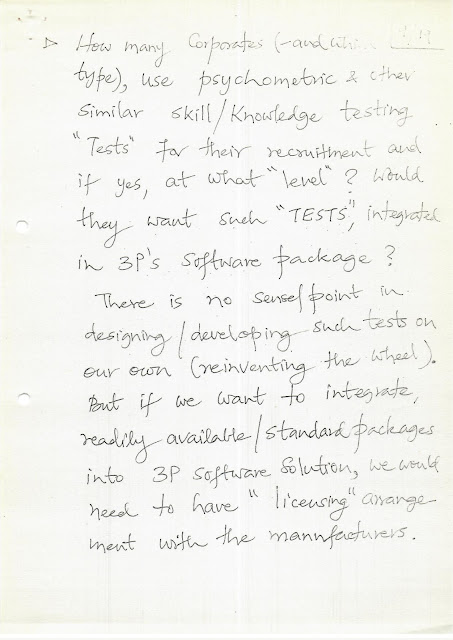 ▷ How many Corporates (-and which
type), use psychometric & other
similar skill/Knowledge testing
"Tests" for their recruitment and
if yes, at what "level"? Would
they want such "TESTS", integrated
in 3P's Software package?
There is no sense/point in
designing/developing such tests on
our own (reinventing the wheel).
But if we want to integrate,
readily available/standard packages
into 3P Software Solution, we would
need to have "licensing" arrange-
ment with the mannfacturers.